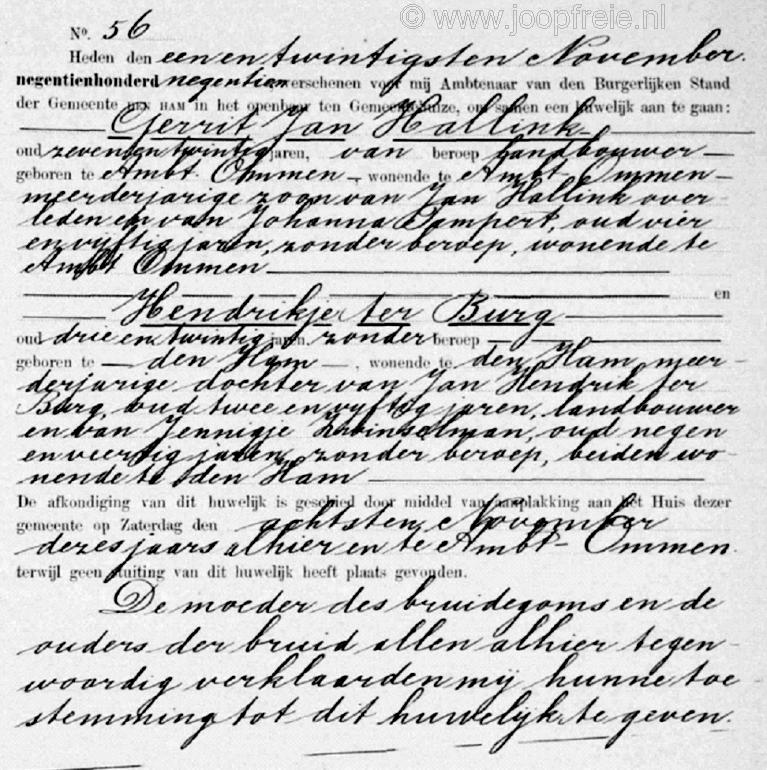 © www.joopfreie.nl
No. 56
Heden den een en twintigsten November
negentienhonderd negentien verschenen voor mij Ambtenaar van den Burgerlijken Stand
der Gemeente DEN HAM in het openbaar ten Gemeentehuize, om samen een huwelijk aan te gaan:
Gerrit Jan Hallink
oud zeven en twintig jaren, van beroep landbouwer
geboren te Ambt Ommen, wonende te Ambt Ommen
meerderjarige zoon van Jan Hallink over-
leden en van Johanna Dampert, oud vier
en vijftig jaren, zonder beroep, wonende te
Ambt Ommen
en
Hendrikje ter Burg
oud drie en twintig jaren, zonder beroep
geboren te den Ham, wonende te den Ham, meer-
derjarige dochter van Jan Hendrik ter
Burg, oud twee en vijftig jaren, landbouwer
en van Jennigje, oud negen
en veertig jaren, zonder beroep, beiden wo-
nende te den Ham
De afkondiging van dit huwelijk is geschied door middel van aanplakking aan het Huis dezer
gemeente op Zaterdag den achtsten November
dezes jaars alhier en te Ambt-Ommen
terwijl geen stuiting van dit huwelijk heeft plaats gevonden.
De moeder des bruidegoms en de
ouders der bruid, allen alhier tegen-
woordig verklaarden mij hunne toe
stemming tot dit huwelijk te geven.